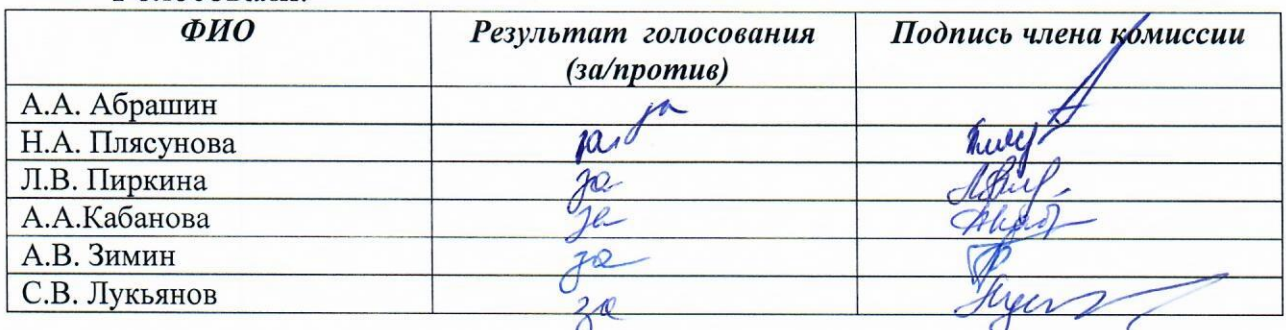 ФИО Результат голосования Подпись члена комиссии
(за/против)
А.А. Абрашин за
Н.А. Плясунова за
Л.В. Пиркина за
А.А.Кабанова за
А.В. Зимин за
С.В. Лукьянов за